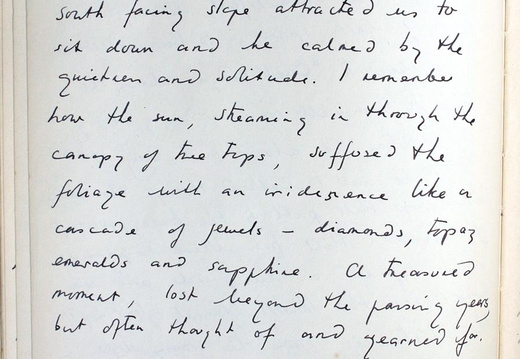 south facing slope attracted us to
sit down and be calmed by the
quietness and solitude. I remember
how the sun, streaming in through the
canopy of tree tops, suffused the
foliage with an iridescence like a
cascade of jewels – diamonds, topaz
emeralds and sapphire. A treasured
moment, lost beyond the passing years,
but often thought of and yearned for.